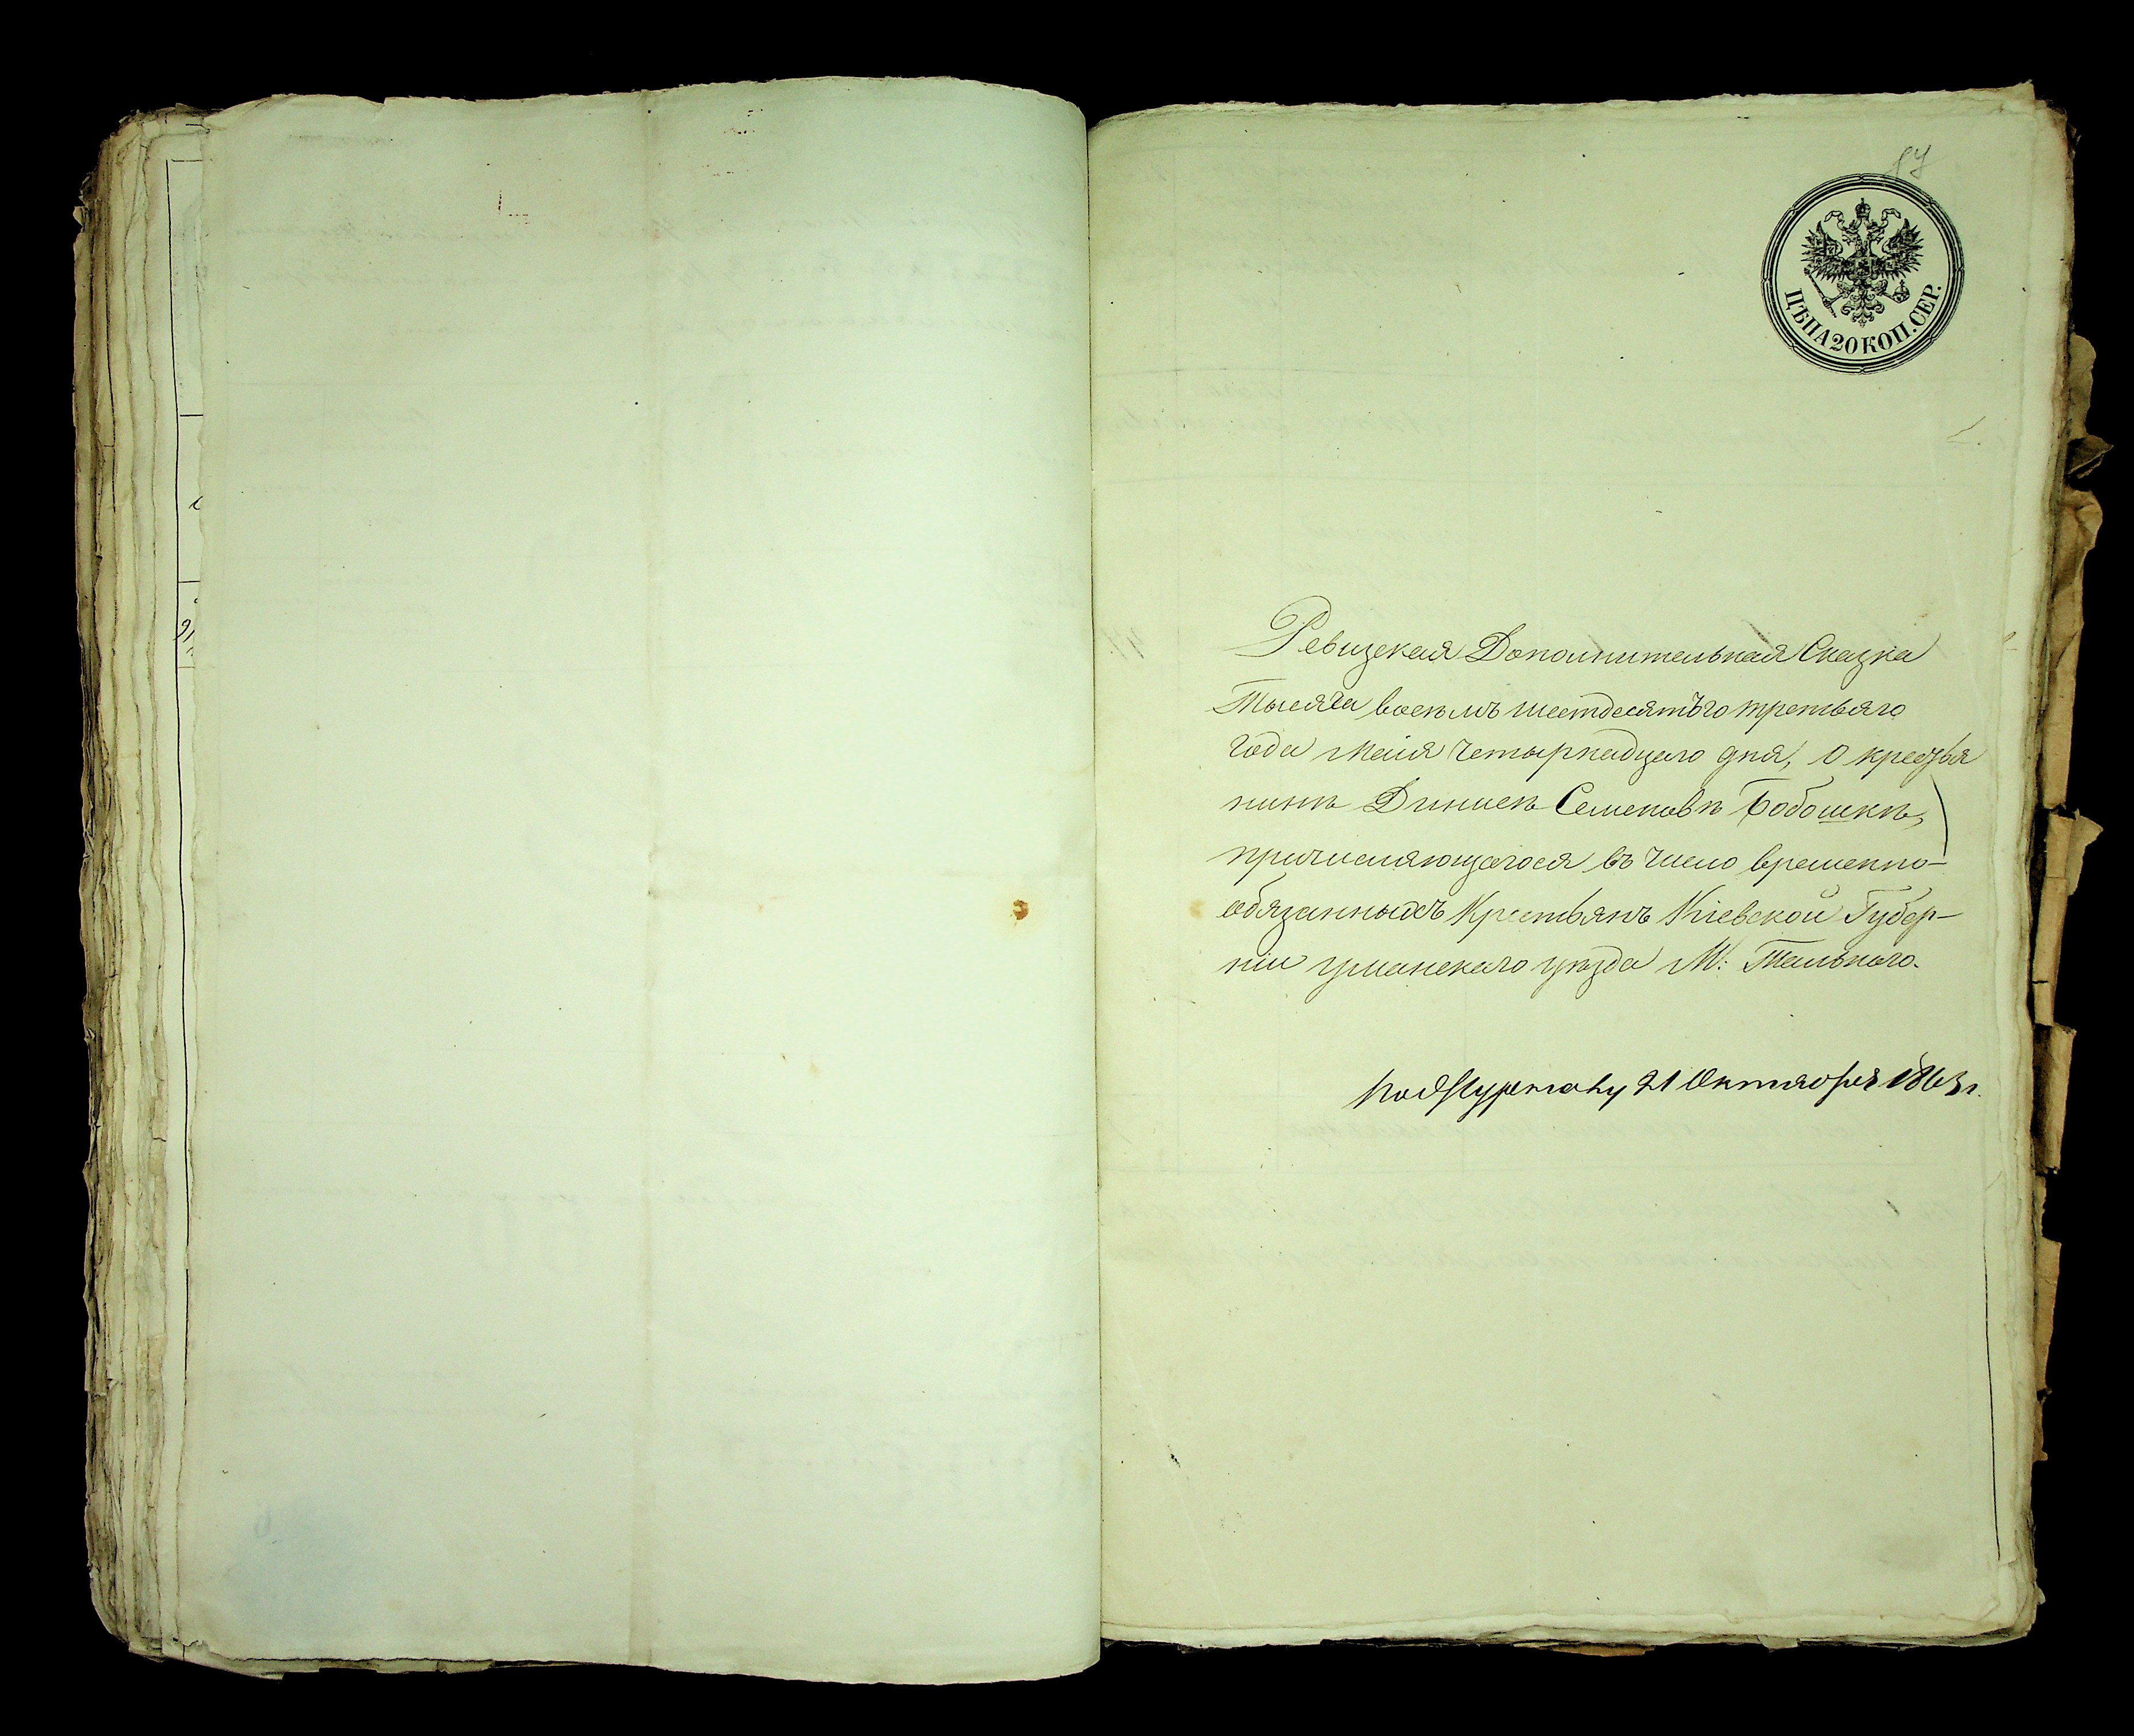 ЦѢНА 20 КОП. СЕР.
Ревизская Дополнительная Сказка
Тысяча восемъ шестдесятъго третьяго
года мая четырнадцаго дня, О кресья
нинѣ Семеновѣ Бобошкѣ,
причисляющагося въ число временно-
обязанныхъ Крестьянъ Кіевской Губер-
ніи уманскаго уѣзда М: Тального.
21 Октября 1863 г.